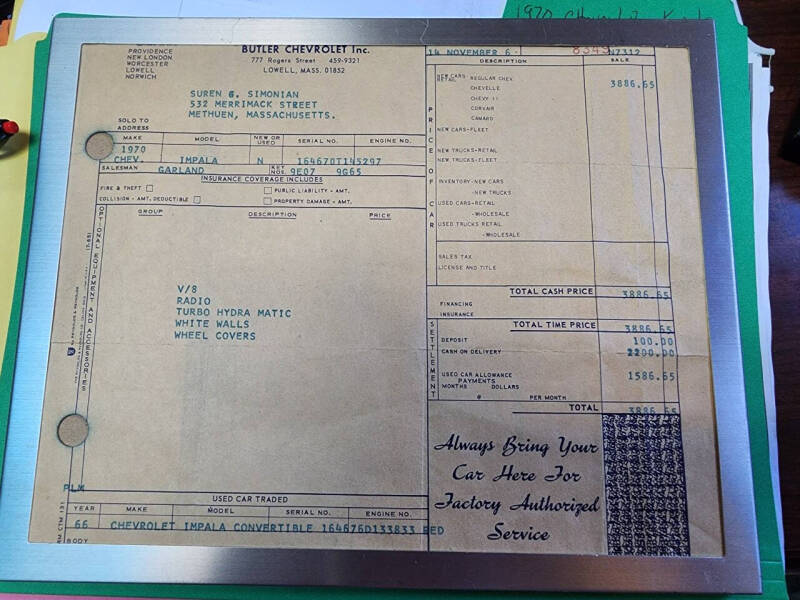 1970 Chevrolet
PROVIDENCE
NEW LONDON
WORCESTER
LOWELL
NORWICH
BUTLER CHEVROLET Inc.
777 Rogers Street 459-9321
LOWELL, MASS. 01852
14 NOVEMBER 6
8343
N7312
DESCRIPTION SALE
SUREN G. SIMONIAN
532 MERRIMACK STREET
METHUEN, MASSACHUSETTS.
SOLD TO
ADDRESS
MAKE MODEL NEW OR USED SERIAL NO. ENGINE NO.
1970
CHEV. IMPALA N 164670T145297
SALESMAN GARLAND KEY NOS. 9E07 9G65
INSURANCE COVERAGE INCLUDES
FIRE & THEFT PUBLIC LIABILITY - AMT.
COLLISION - AMT. DEDUCTIBLE PROPERTY DAMAGE - AMT.
GROUP DESCRIPTION PRICE
OPTIONAL EQUIPMENT AND ACCESSORIES
V/8
RADIO
TURBO HYDRA MATIC
WHITE WALLS
WHEEL COVERS
PLM
USED CAR TRADED
YEAR MAKE MODEL SERIAL NO. ENGINE NO.
66 CHEVROLET IMPALA CONVERTIBLE 164676D133833 RED
BODY
PRICE OF CAR
NEW CARS RETAIL REGULAR CHEV. 3886.65
CHEVELLE
CHEVY II
CORVAIR
CAMARO
NEW CARS-FLEET
NEW TRUCKS-RETAIL
NEW TRUCKS-FLEET
INVENTORY-NEW CARS
-NEW TRUCKS
USED CARS-RETAIL
-WHOLESALE
USED TRUCKS RETAIL
-WHOLESALE
SALES TAX
LICENSE AND TITLE
TOTAL CASH PRICE 3886.65
FINANCING
INSURANCE
TOTAL TIME PRICE 3886.65
SETTLEMENT
DEPOSIT 100.00
CASH ON DELIVERY 2200.00
USED CAR ALLOWANCE 1586.65
PAYMENTS
MONTHS DOLLARS
@ PER MONTH
TOTAL 3886.65
Always Bring Your
Car Here For
Factory Authorized
Service